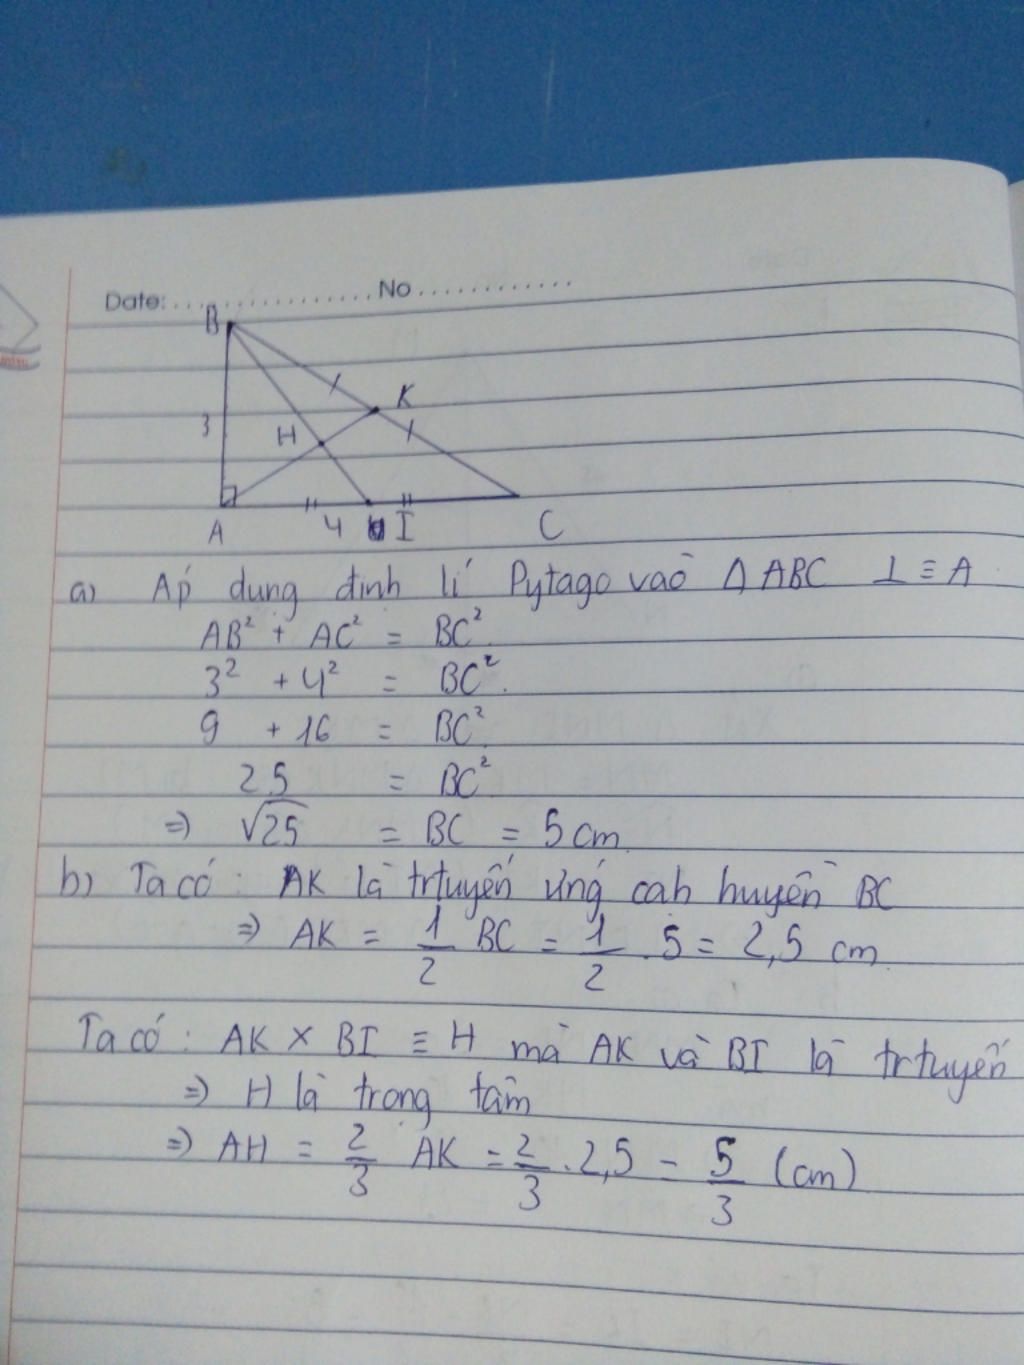 Date: .................. No ............
B
K
3
H
A
4
I
C
a) Áp dụng định lí Pytago vào Δ ABC ⊥ ≡ A
AB² + AC² = BC².
3² + 4² = BC².
9 + 16 = BC².
25 = BC²
=> √25 = BC = 5 cm.
b) Ta có : AK là trtuyến ứng cah huyền BC
=> AK = 1/2 BC = 1/2 . 5 = 2,5 cm.
Ta có : AK × BI ≡ H mà AK và BI là trtuyến
=> H là trọng tâm
=> AH = 2/3 AK = 2/3 . 2,5 = 5/3 (cm)